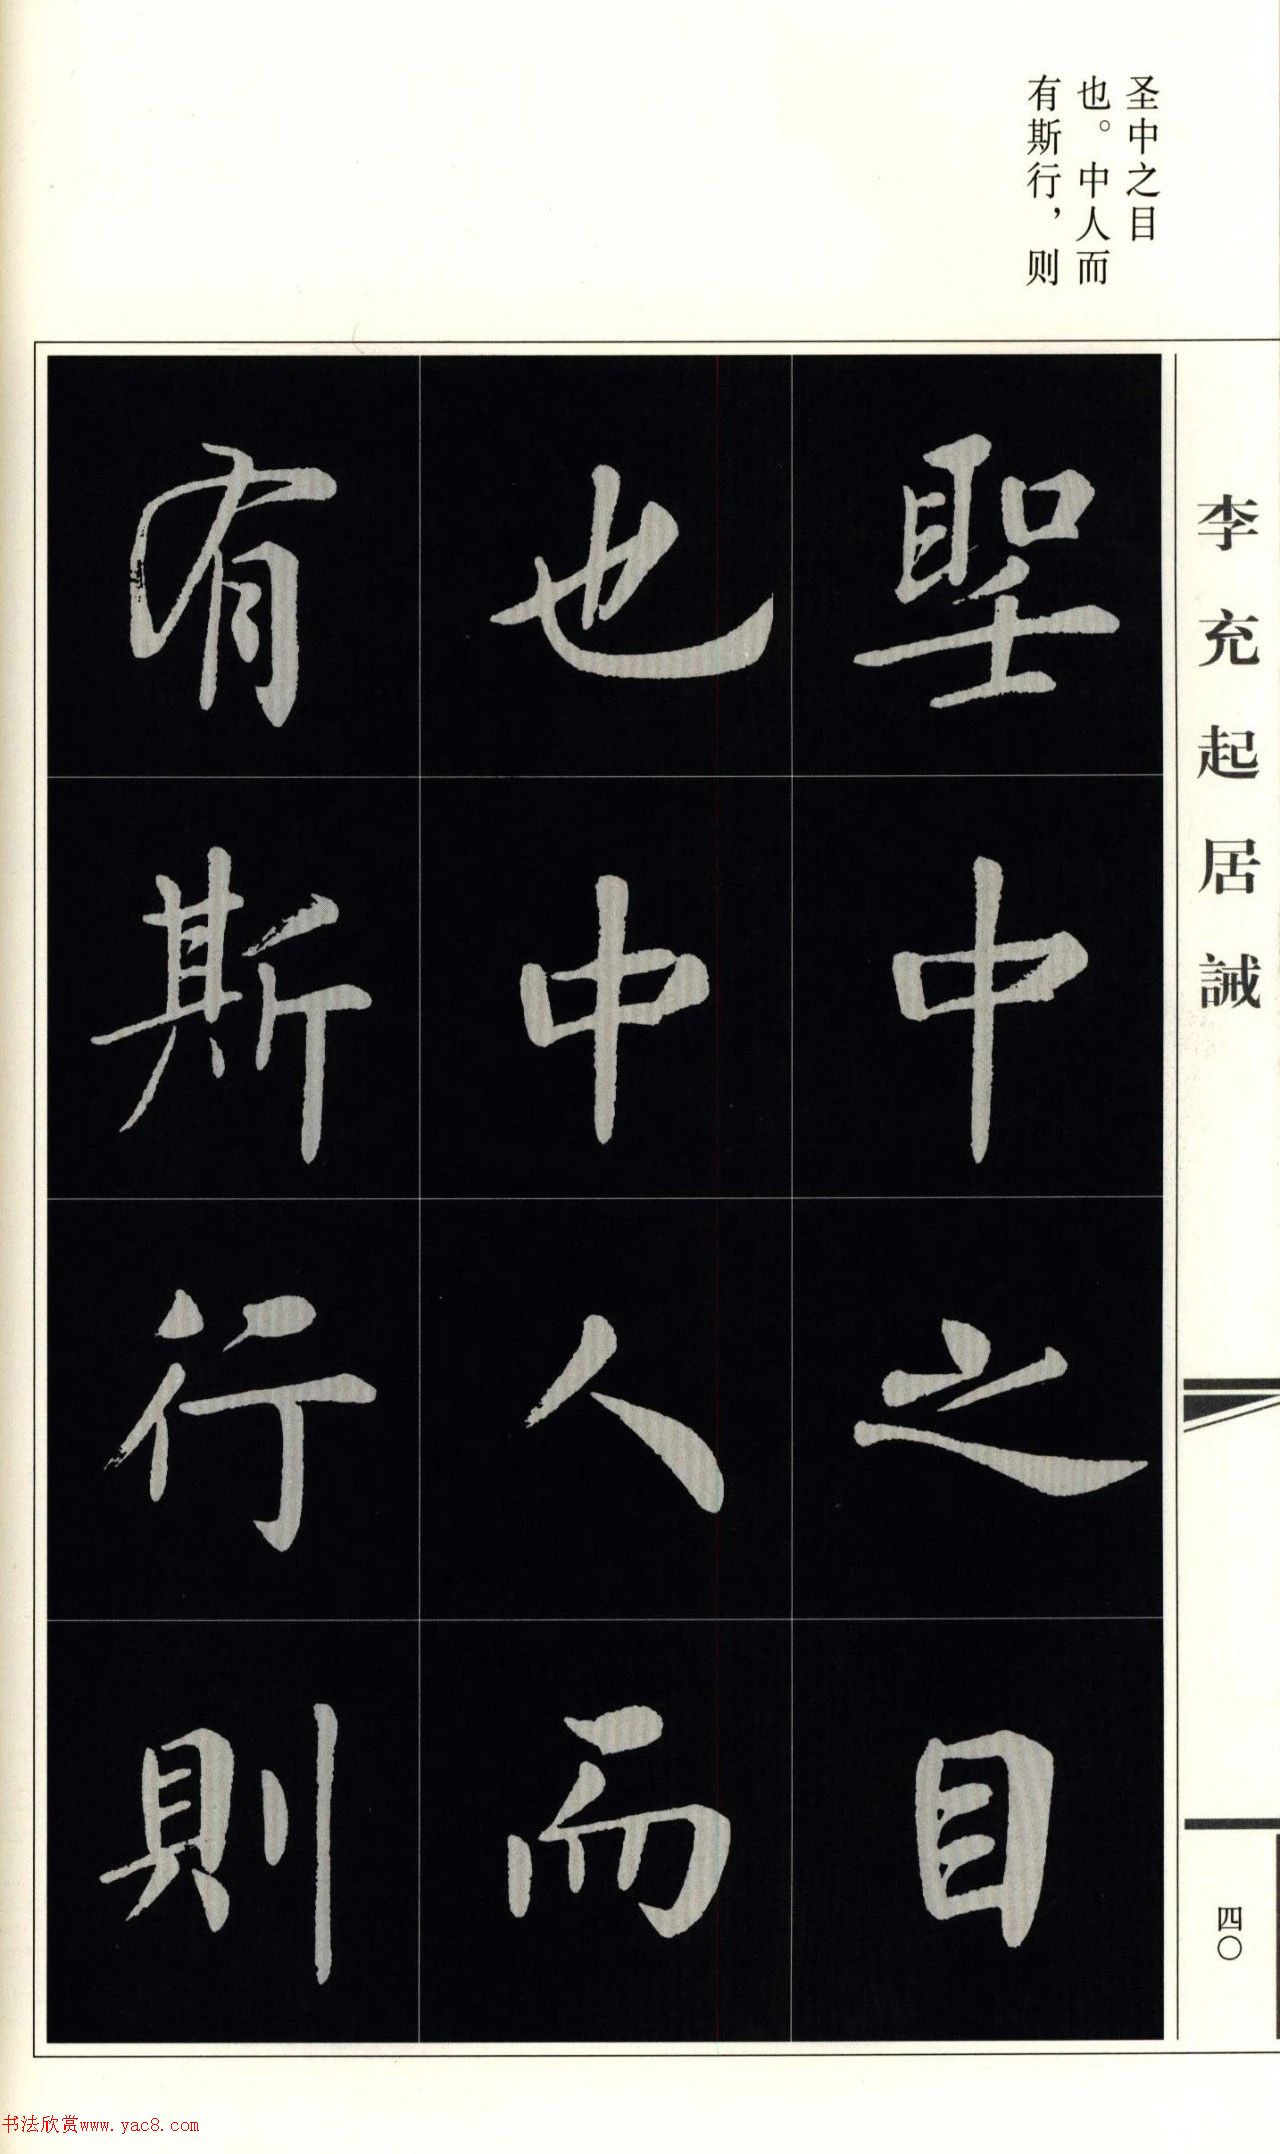 圣中之目
也。中人而
有斯行，则
聖中之目
也中人而
有斯行則
李充起居誡
四〇
书法欣赏www.yac8.com